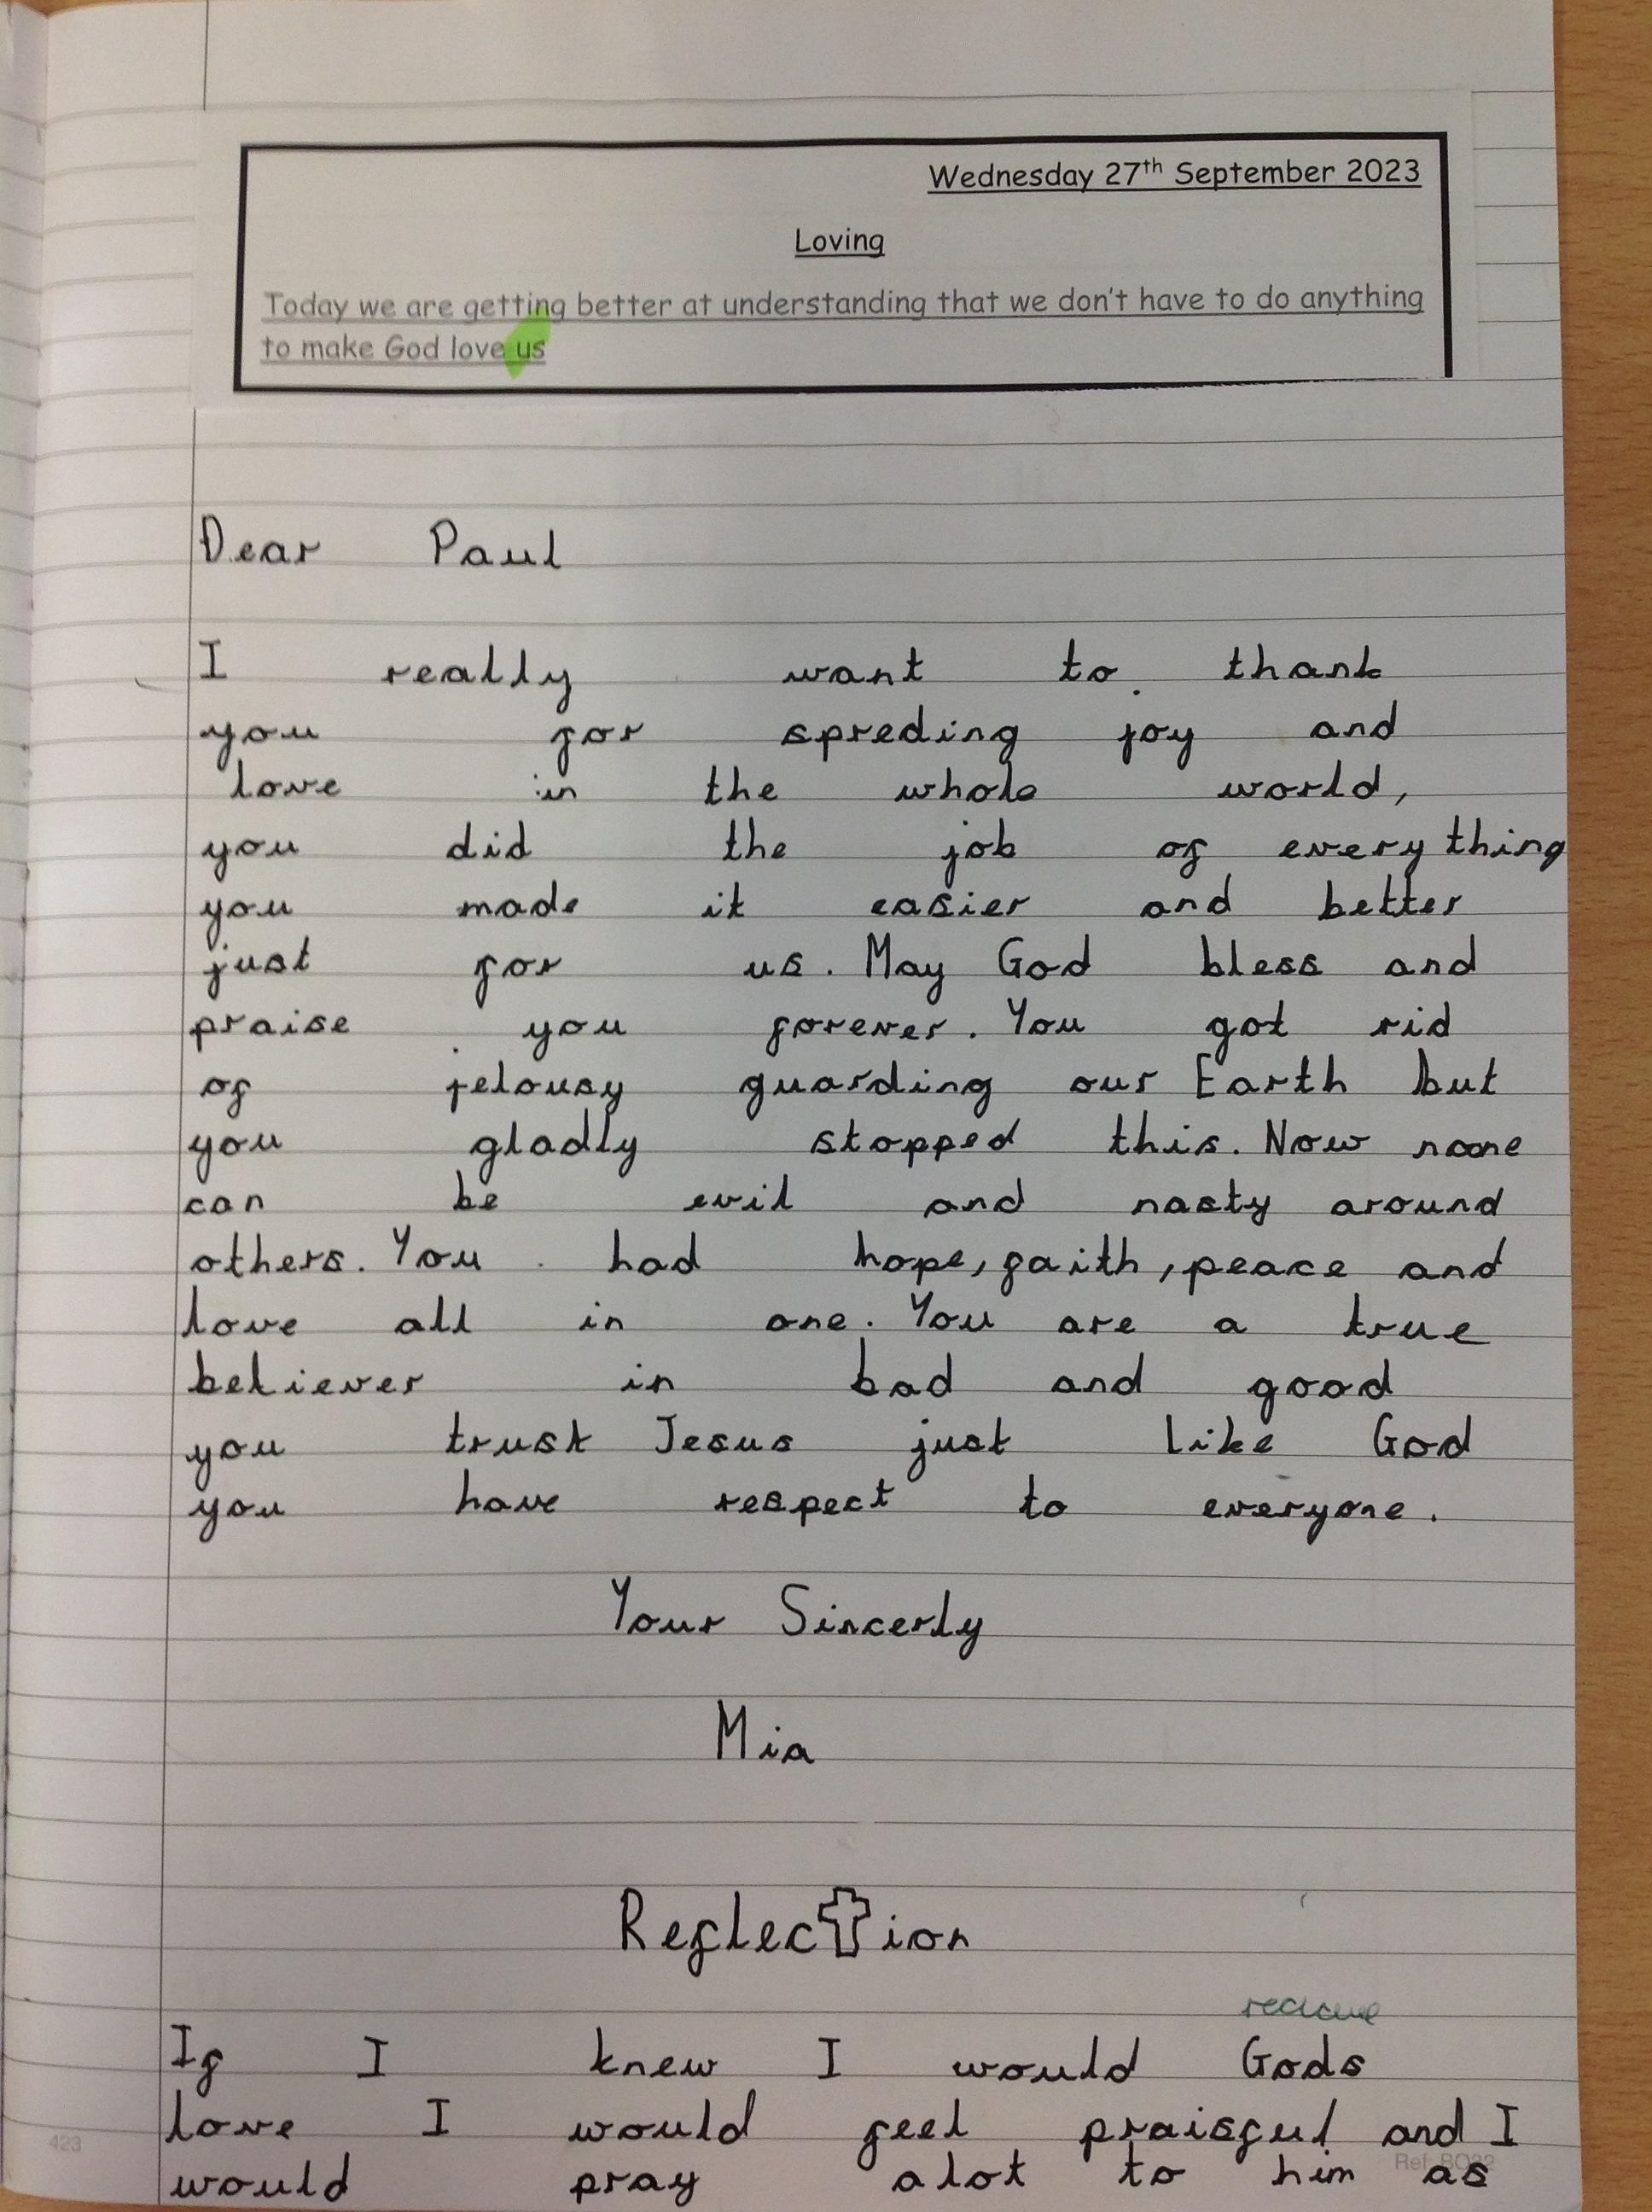 Wednesday 27th September 2023
Loving
Today we are getting better at understanding that we don't have to do anything
to make God love us
Dear Paul
I really want to thank
you for spreding joy and
love in the whole world,
you did the job of every thing
you made it easier and better
just for us. May God bless and
praise you forever. You got rid
of jelousy guarding our Earth but
you gladly stopped this. Now noone
can be evil and nasty around
others. You had hope, faith, peace and
love all in one. You are a true
believer in bad and good
you trust Jesus just like God
you have respect to everyone.
Your Sincerly
Mia
Reflection
If I knew I would Gods
love I would feel praisful and I
423
would pray alot to him as